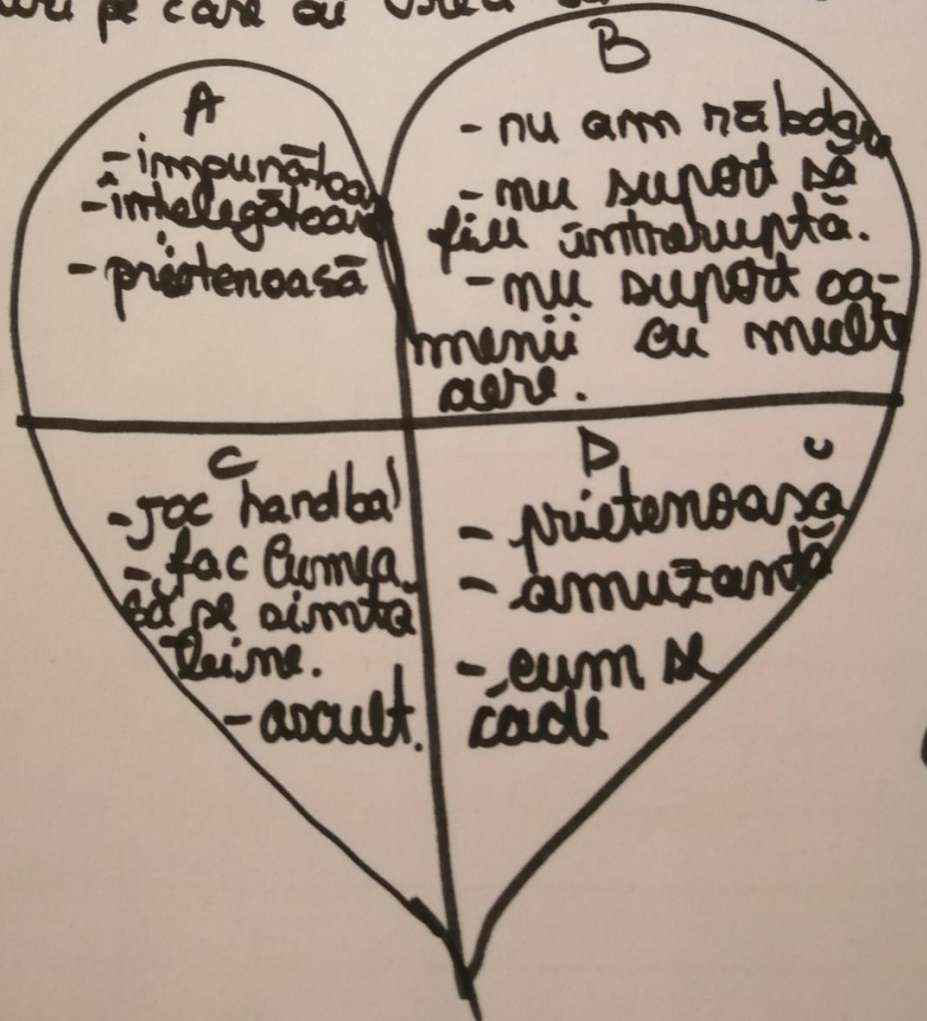 pe care eu
A
- impunătoare
- înțelegătoare
- prietenoasă
B
- nu am răbdare
- nu suport să
fiu întreruptă.
- nu suport oa-
menii cu multe
aere.
C
- joc handbal
- fac lumea
să se simtă
bine.
- ascult.
D
- prietenoasă
- amuzantă
- cum se
cade